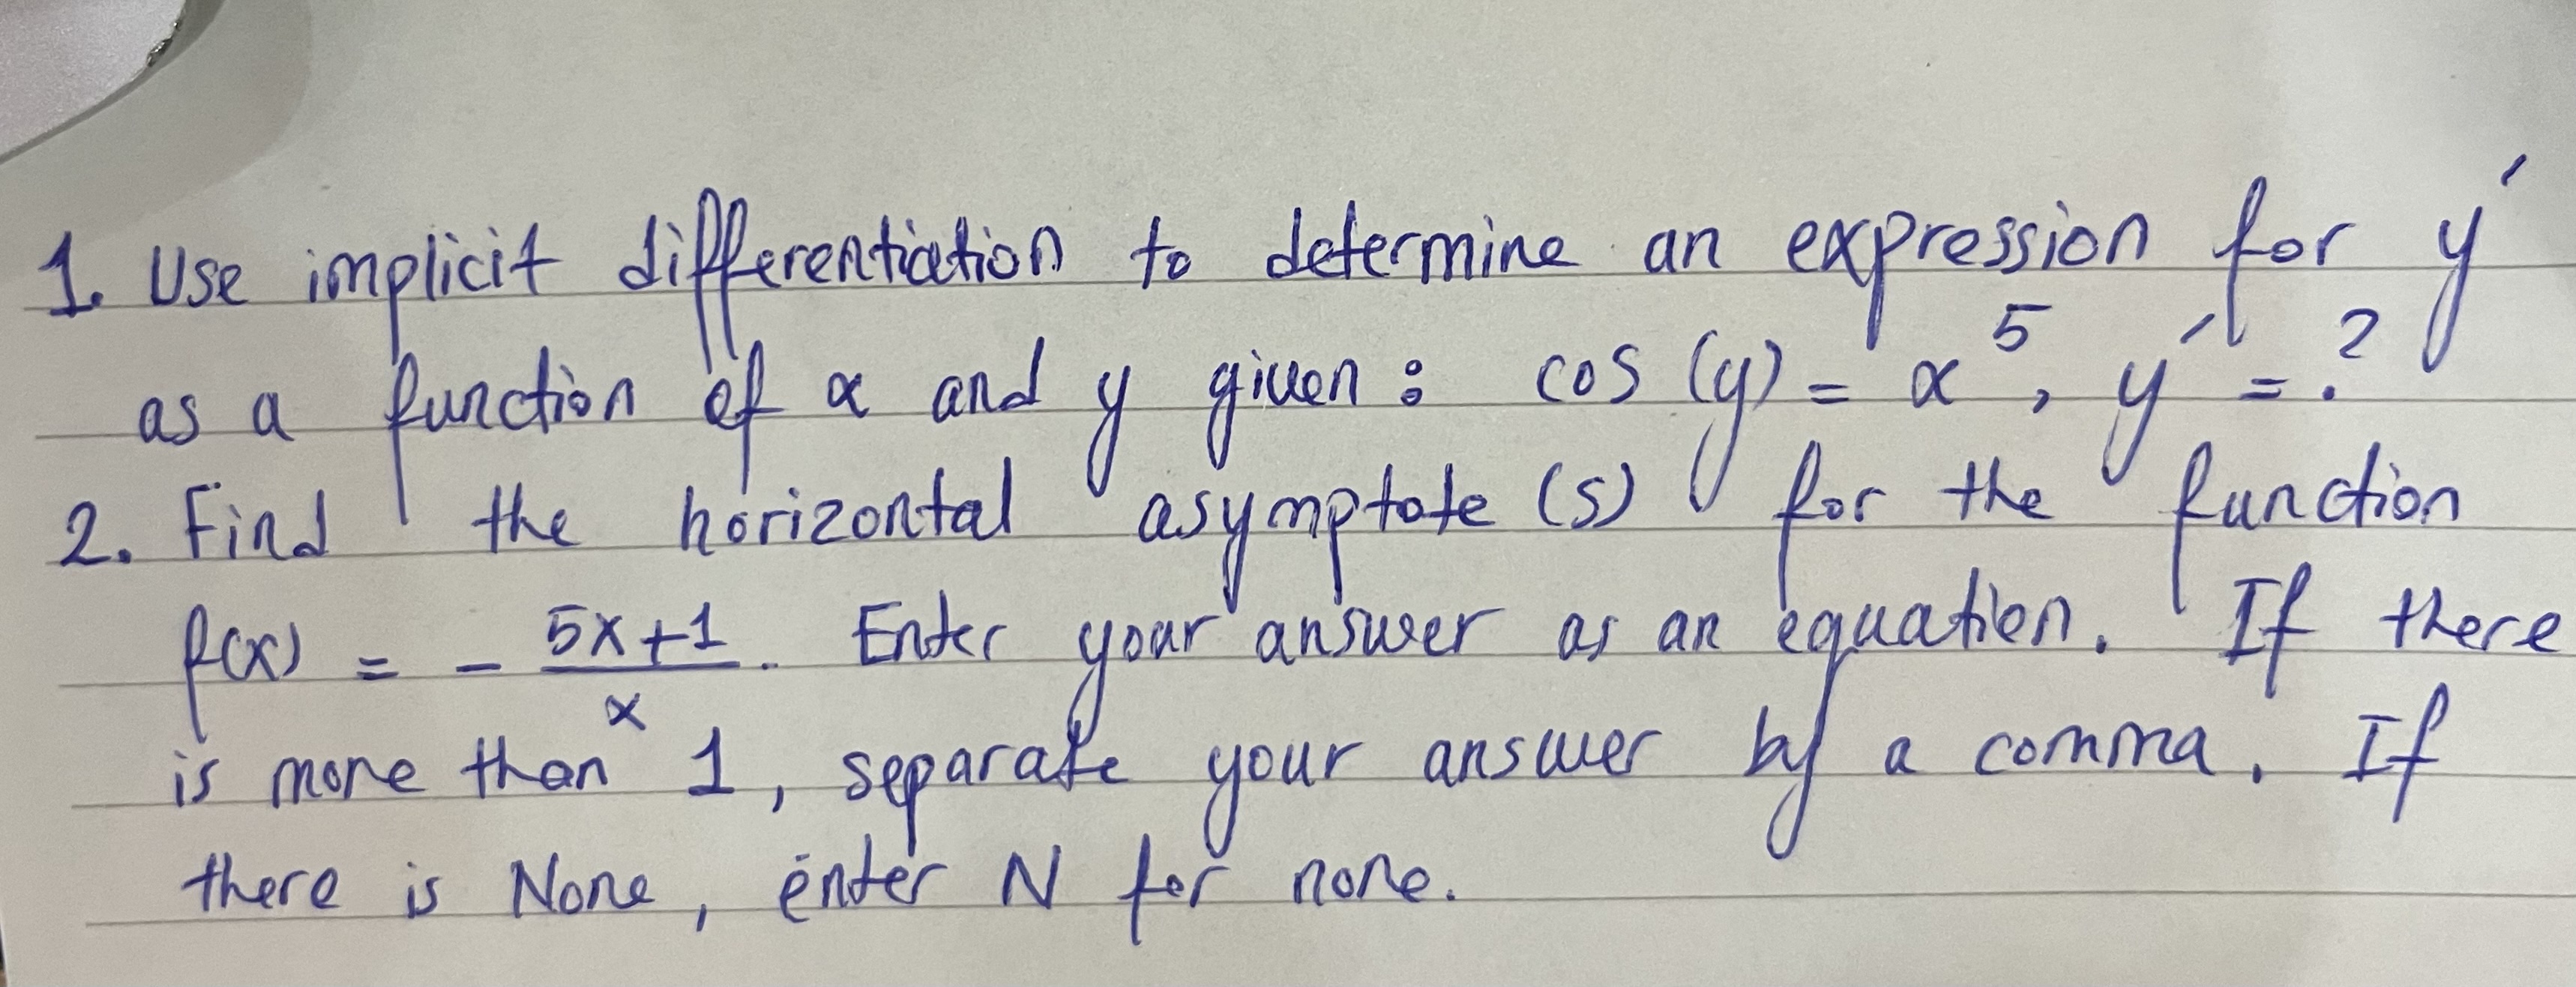 1. Use implicit differentiation to determine an expression for y'
as a function of x and y given : cos (y) = x^5, y' = ?
2. Find the horizontal asymptote (s) for the function
f(x) = - (5x+1)/x. Enter your answer as an equation. If there
is more than 1, separate your answer by a comma. If
there is None, enter N for none.